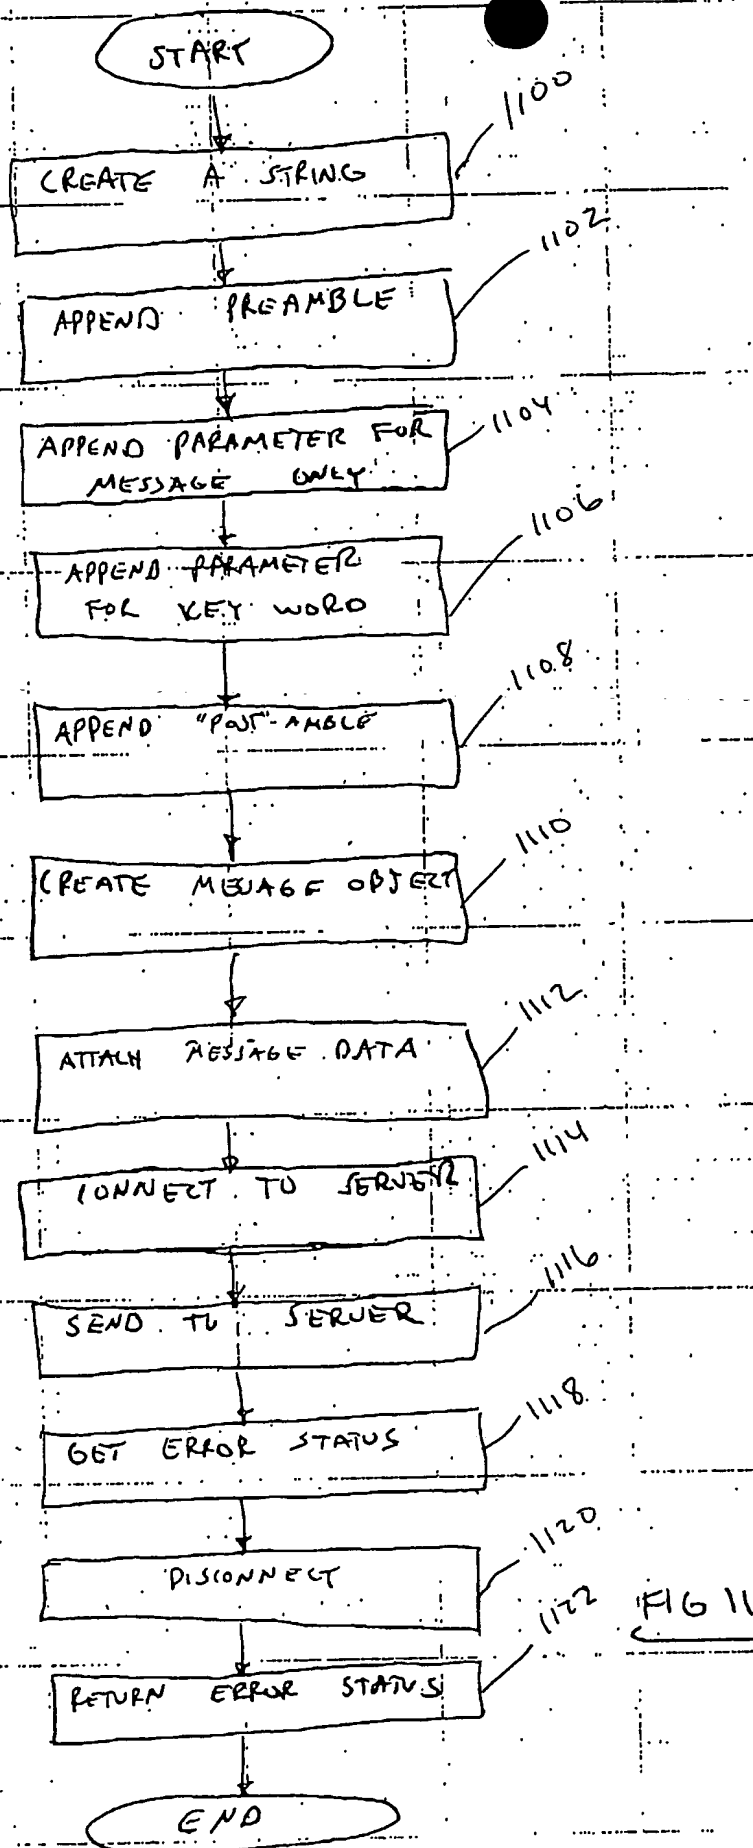 START
1100
CREATE A STRING
1102
APPEND PREAMBLE
1104
APPEND PARAMETER FOR
MESSAGE ONLY
1106
APPEND PARAMETER
FOR KEY WORD
1108
APPEND "POST"-AMBLE
1110
CREATE MESSAGE OBJECT
1112
ATTACH MESSAGE DATA
1114
CONNECT TO SERVER
1116
SEND TO SERVER
1118
GET ERROR STATUS
1120
DISCONNECT
1122
FIG 11
RETURN ERROR STATUS
END